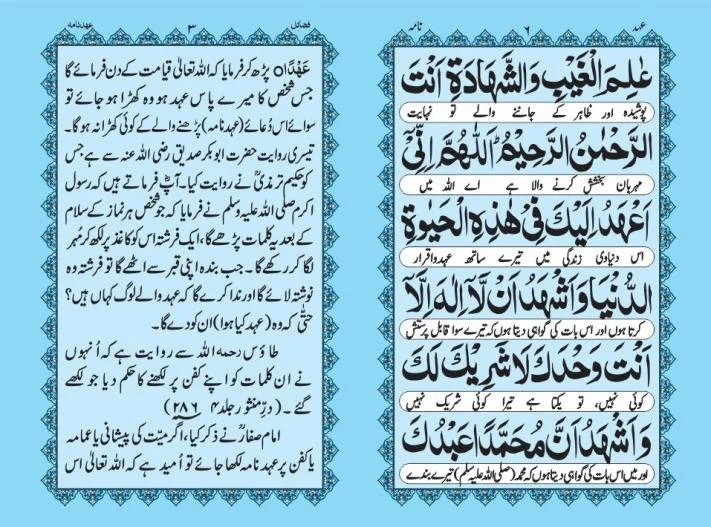 عہد ۶ نامہ
عٰلِمَ الْغَيْبِ وَالشَّهَادَةِ اَنْتَ
پوشیدہ اور ظاہر کے جاننے والے تو نہایت
الرَّحْمٰنُ الرَّحِيْمُ اَللّٰهُمَّ اِنِّيْۤ
مہربان بخشش کرنے والا ہے اے اللہ میں
اَعْهَدُ اِلَيْكَ فِيْ هٰذِهِ الْحَيٰوةِ
اس دنیاوی زندگی میں تیرے ساتھ عہد و اقرار
الدُّنْيَا وَاَشْهَدُ اَنْ لَّاۤ اِلٰهَ اِلَّاۤ
کرتا ہوں اور اس بات کی گواہی دیتا ہوں کہ تیرے سوا قابل پرستش
اَنْتَ وَحْدَكَ لَا شَرِيْكَ لَكَ
کوئی نہیں، تو یکتا ہے تیرا کوئی شریک نہیں
وَاَشْهَدُ اَنَّ مُحَمَّدًا عَبْدُكَ
اور میں اس بات کی گواہی دیتا ہوں کہ محمد (صلی اللہ علیہ وسلم) تیرے بندے
فضائل ۳ عہد نامہ
عَهْدًا ○ پڑھ کر فرمایا کہ اللہ تعالیٰ قیامت کے دن فرمائے گا
جس شخص کا میرے پاس عہد ہو وہ کھڑا ہو جائے تو
سوائے اس دُعائے (عہد نامہ) پڑھنے والے کے کوئی کھڑا نہ ہوگا۔
تیسری روایت حضرت ابوبکر صدیق رضی اللہ عنہ سے ہے جس
کو حکیم ترمذیؒ نے روایت کیا۔ آپؓ فرماتے ہیں کہ رسول
اکرم صلی اللہ علیہ وسلم نے فرمایا کہ جو شخص ہر نماز کے سلام
کے بعد یہ کلمات پڑھے گا، ایک فرشتہ اس کو کاغذ پر لکھ کر مُہر
لگا کر رکھے گا۔ جب بندہ اپنی قبر سے اٹھے گا تو فرشتہ وہ
نوشتہ لائے گا اور ندا کرے گا کہ عہد والے لوگ کہاں ہیں؟
حتّٰی کہ وہ (عہد کیا ہوا) ان کو دے گا۔
طاؤس رحمہ اللہ سے روایت ہے کہ اُنہوں
نے ان کلمات کو اپنے کفن پر لکھنے کا حکم دیا جو لکھے
گئے۔ (درّ منثور جلد ۴ ۲۸۶)
امام صفارؒ نے ذکر کیا، اگر میّت کی پیشانی یا عمامہ
یا کفن پر عہد نامہ لکھا جائے تو اُمید ہے کہ اللہ تعالیٰ اس